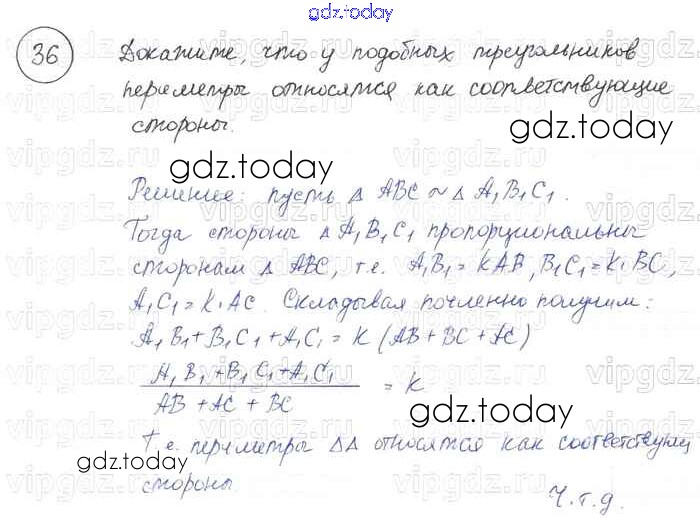 gdz.today
36 Докажите, что у подобных треугольников
периметры относятся как соответствующие
стороны.
gdz.today
Решение: пусть Δ ABC ~ Δ A₁B₁C₁.
Тогда стороны Δ A₁B₁C₁ пропорциональны
сторонам Δ ABC, т.е. A₁B₁ = KAB, B₁C₁ = K·BC,
A₁C₁ = K·AC. Складывая почленно получим:
A₁B₁ + B₁C₁ + A₁C₁ = K (AB + BC + AC)
A₁B₁ + B₁C₁ + A₁C₁
AB + AC + BC
= K
gdz.today
Т.е. периметры ΔΔ относятся как соответствующ
gdz.today
стороны.
Ч.т.д.
vipgdz.ru